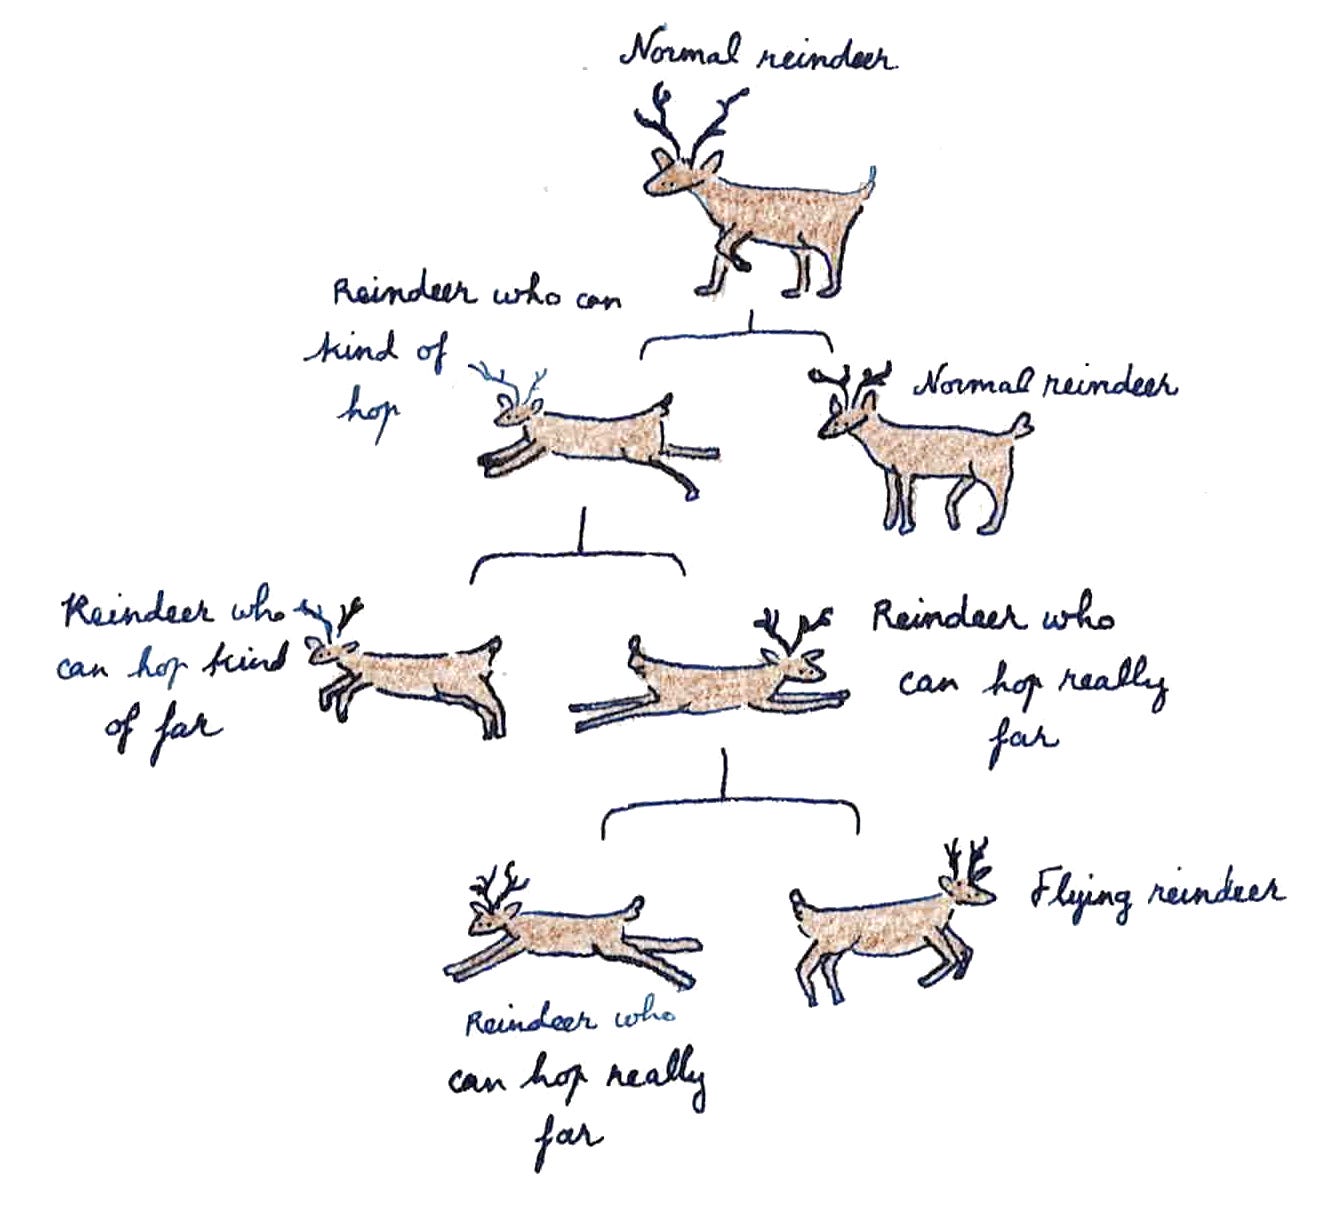 Normal reindeer
Reindeer who can
kind of
hop
Normal reindeer
Reindeer who
can hop kind
of far
Reindeer who
can hop really
far
Flying reindeer
Reindeer who
can hop really
far